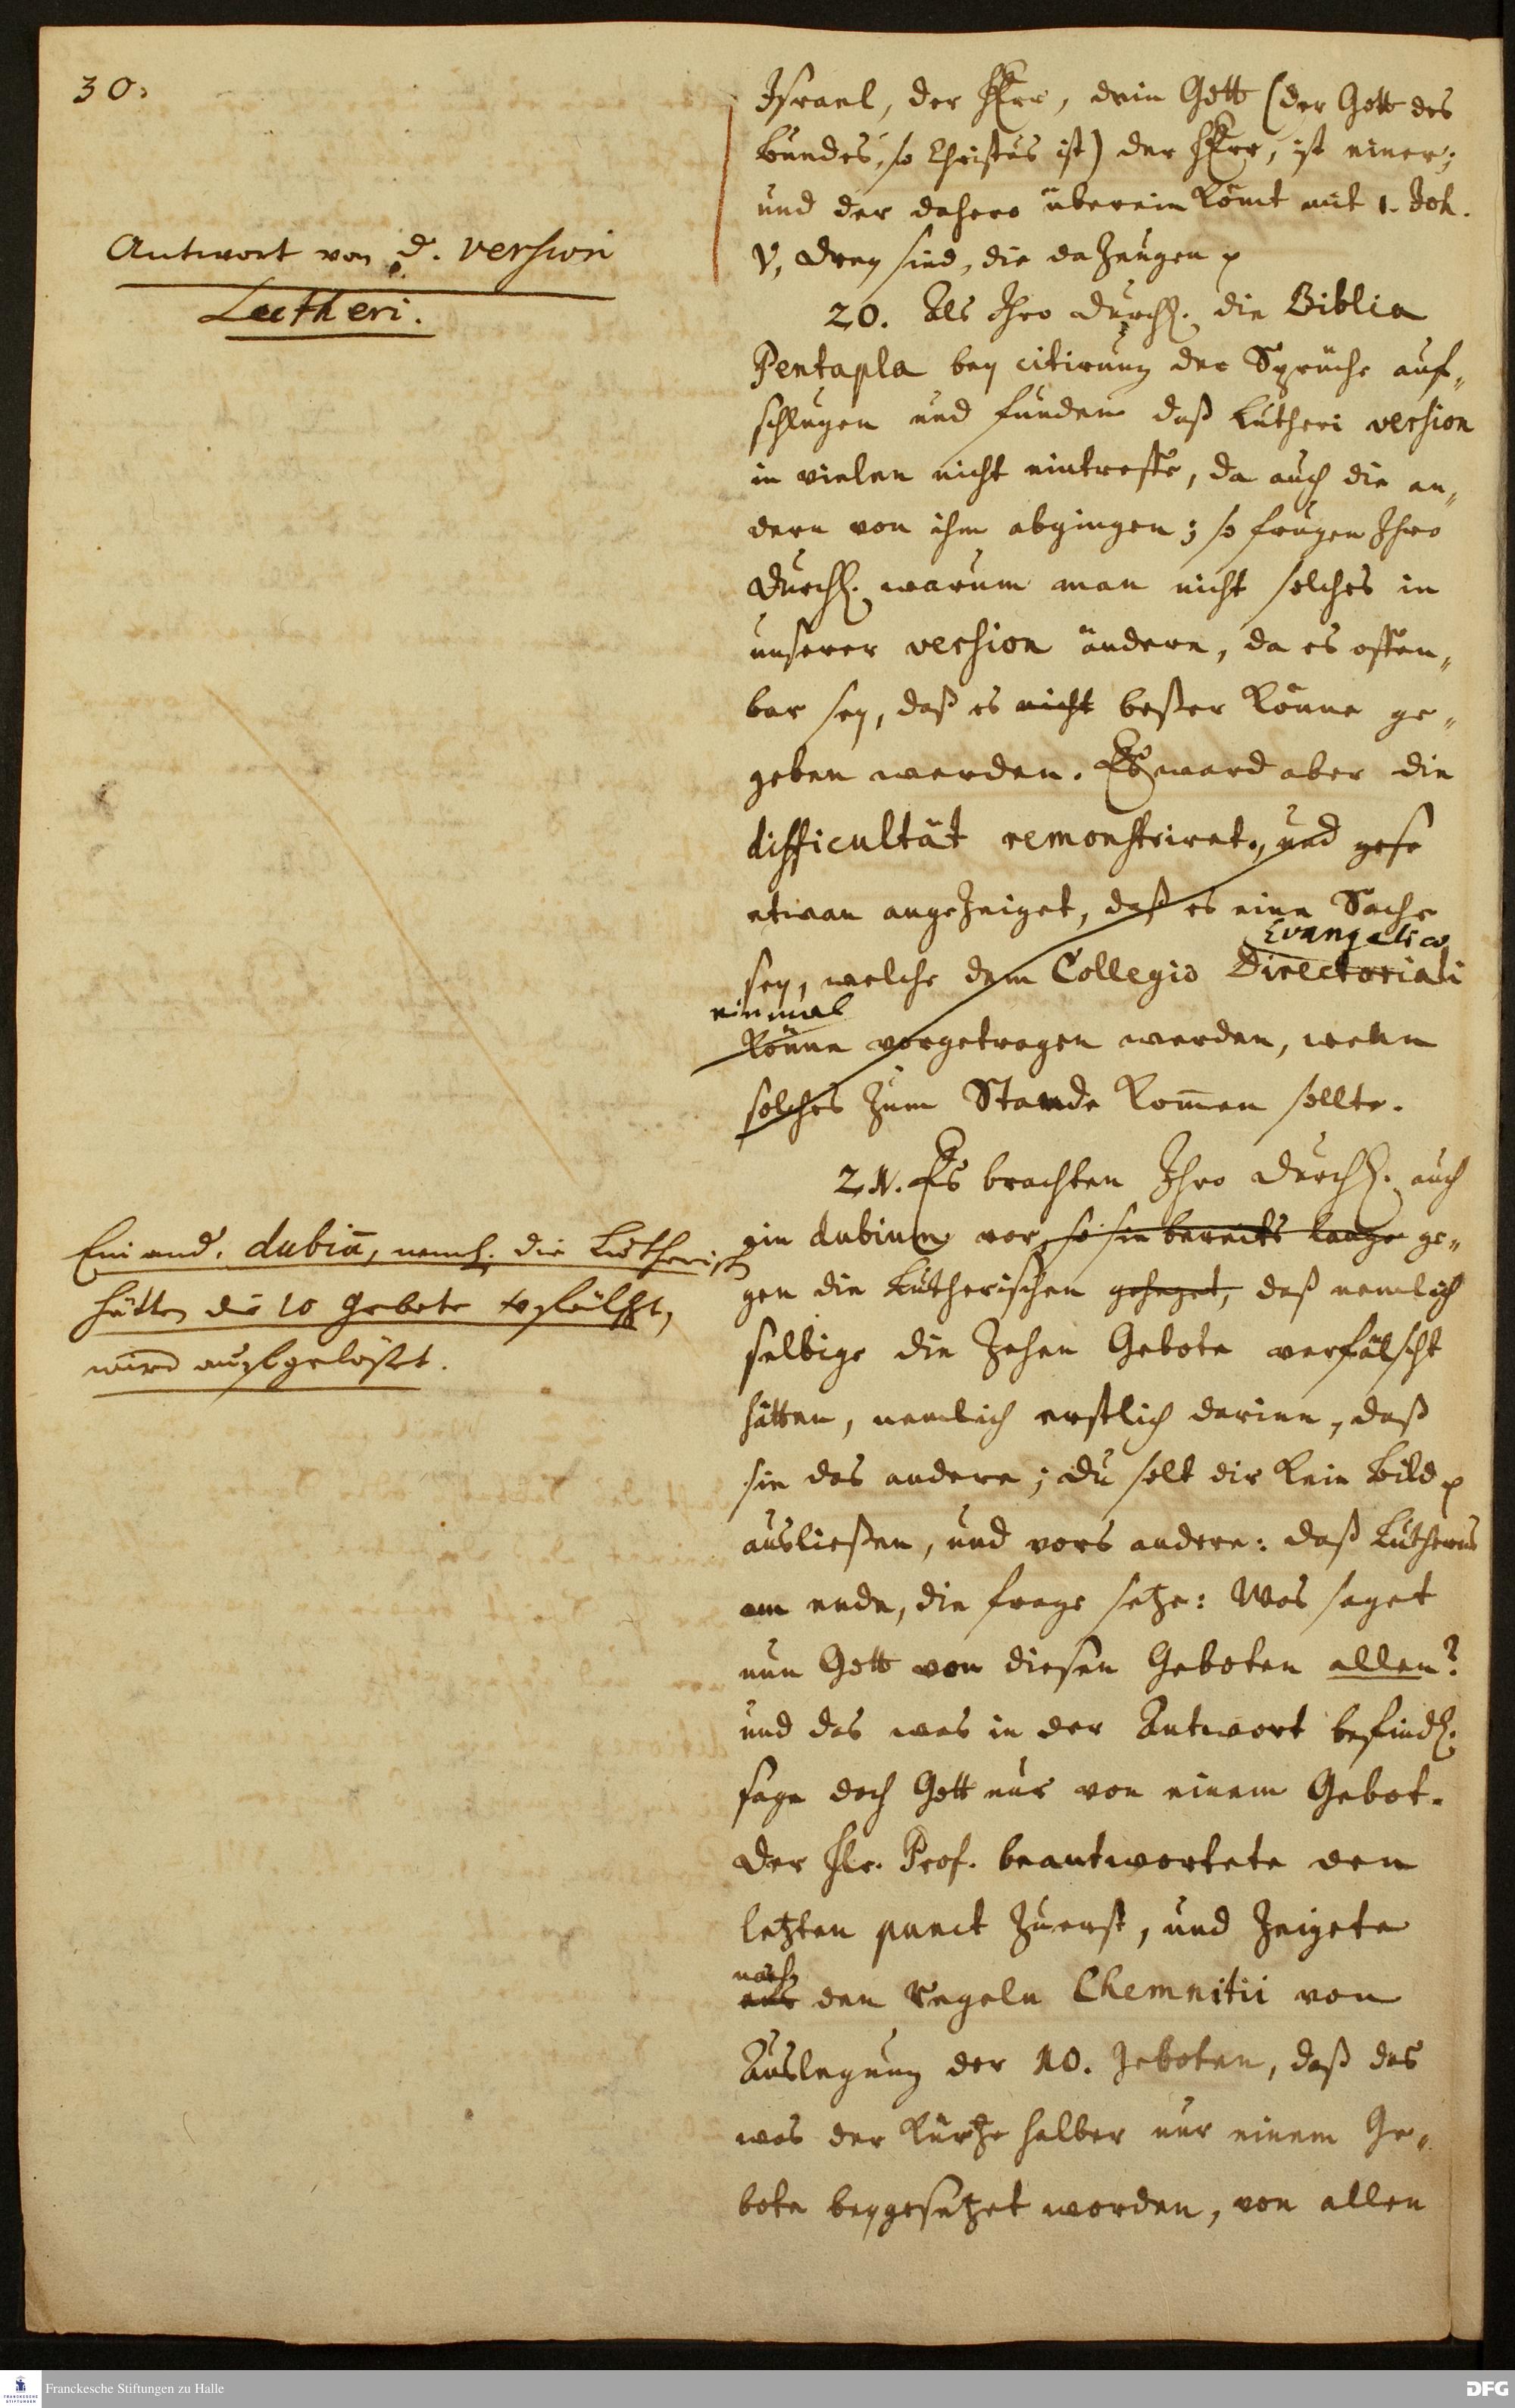 30.
Israel, der HErr, dein Gott (der Gott des
Bundes, so Christus ist) der HErr, ist einer;
und der dahero überein kömt mit 1. Joh.
V, drey sind, die da zeugen p
Antwort von d. version
Lutheri.
20. Als Ihro Durchl. die Biblia
Pentapla bey citirung der Sprüche auf-
schlugen und funden daß Lutheri version
in vielen nicht eintreffe, da auch die an-
dern von ihm abgingen; so frugen Ihro
Durchl. warum man nicht solches in
unserer version ändern, da es offen-
bar sey, daß es nicht beßer könne ge-
geben werden. Es ward aber die
difficultät remonstriret, und
etwan angezeiget, daß es eine Sache
Evangelico
sey, welche dem Collegio Directoriali
einmal
könne vorgetragen werden, wenn
solches zum Stande kommen sollte.
21. Es brachten Ihro Durchl. auch
ein dubium vor, so sie bereits lange ge-
gen die Lutherischen geheget, daß nemlich
selbige die Zehen Gebote verfälscht
hätten, nemlich erstlich darinn, daß
sie das andere; du solt dir kein Bild p
ausließen, und vors andere: daß Lutherus
am ende, die frage setze: Was saget
nun Gott von diesen Geboten allen?
und das was in der Antwort befindl.
sage doch Gott nur von einem Gebot.
Der Hr. Prof. beantwortete den
letzten punct zuerst, und zeigete
nach
aus den Regeln Chemnitii von
Auslegung der 10. Geboten, daß das
was der Kürtze halber nur einem Ge-
bote beygesetzet worden, von allen
Ein and. dubiū, neml. die Lutherisch
hätten die 10 Gebote verfälscht,
wird aufgelöset.
Franckesche Stiftungen zu Halle
DFG